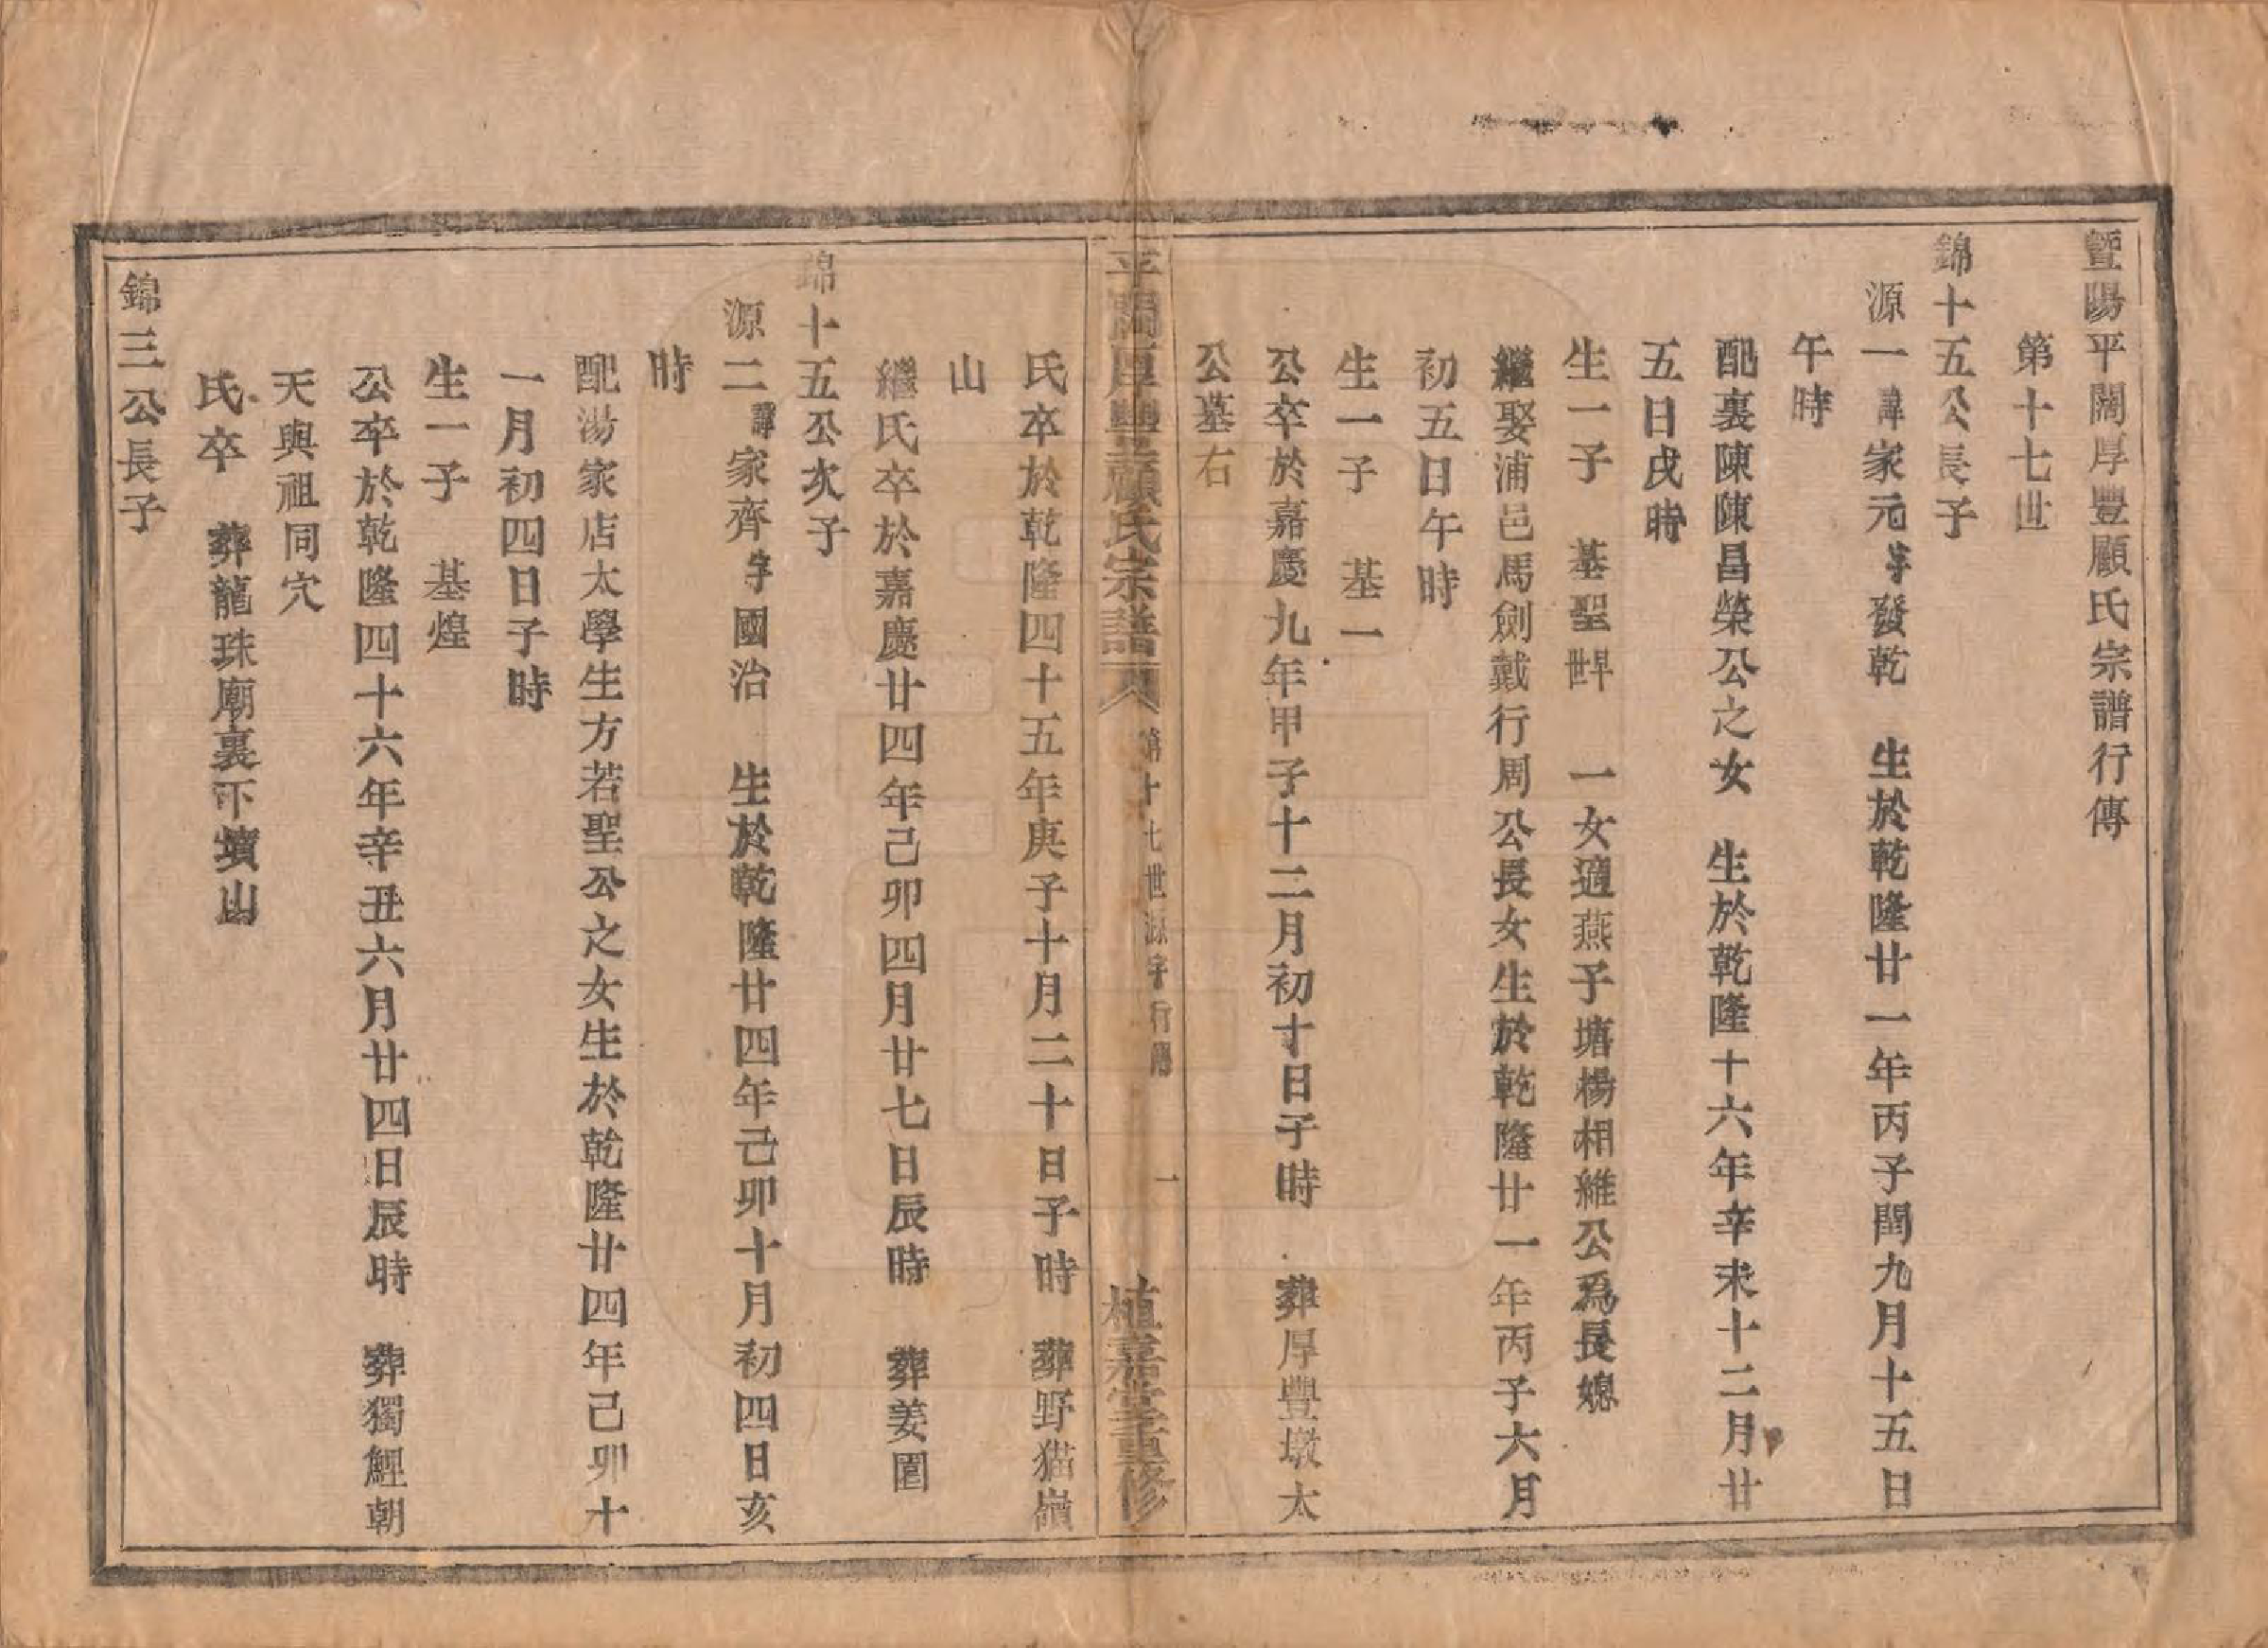 暨陽平闊厚豐顧氏宗譜行傳
第十七世
錦十五公長子
源一諱家元字發乾　生於乾隆廿一年丙子閏九月十五日
午時
配裏陳陳昌榮公之女　生於乾隆十六年辛未十二月廿
五日戌時
生一子　基聖　一女適燕子塘楊相維公爲長媳
繼娶浦邑馬劍戴行周公長女生於乾隆廿一年丙子六月
初五日午時
生一子　基一
公卒於嘉慶九年甲子十二月初十日子時　葬厚豐墩太
公墓右
平闊厚豐顧氏宗譜　第十七世源字行傳　一　植嘉堂重修
氏卒於乾隆四十五年庚子十月二十日子時　葬野猫嶺
山
繼氏卒於嘉慶廿四年己卯四月廿七日辰時　葬姜園
錦十五公次子
源二諱家齊字國治　生於乾隆廿四年己卯十月初四日亥
時
配湯家店太學生方若聖公之女生於乾隆廿四年己卯十
一月初四日子時
生一子　基煌
公卒於乾隆四十六年辛丑六月廿四日辰時　葬獨鯉朝
天與祖同穴
氏卒　葬龍珠廟裏下墳山
錦三公長子